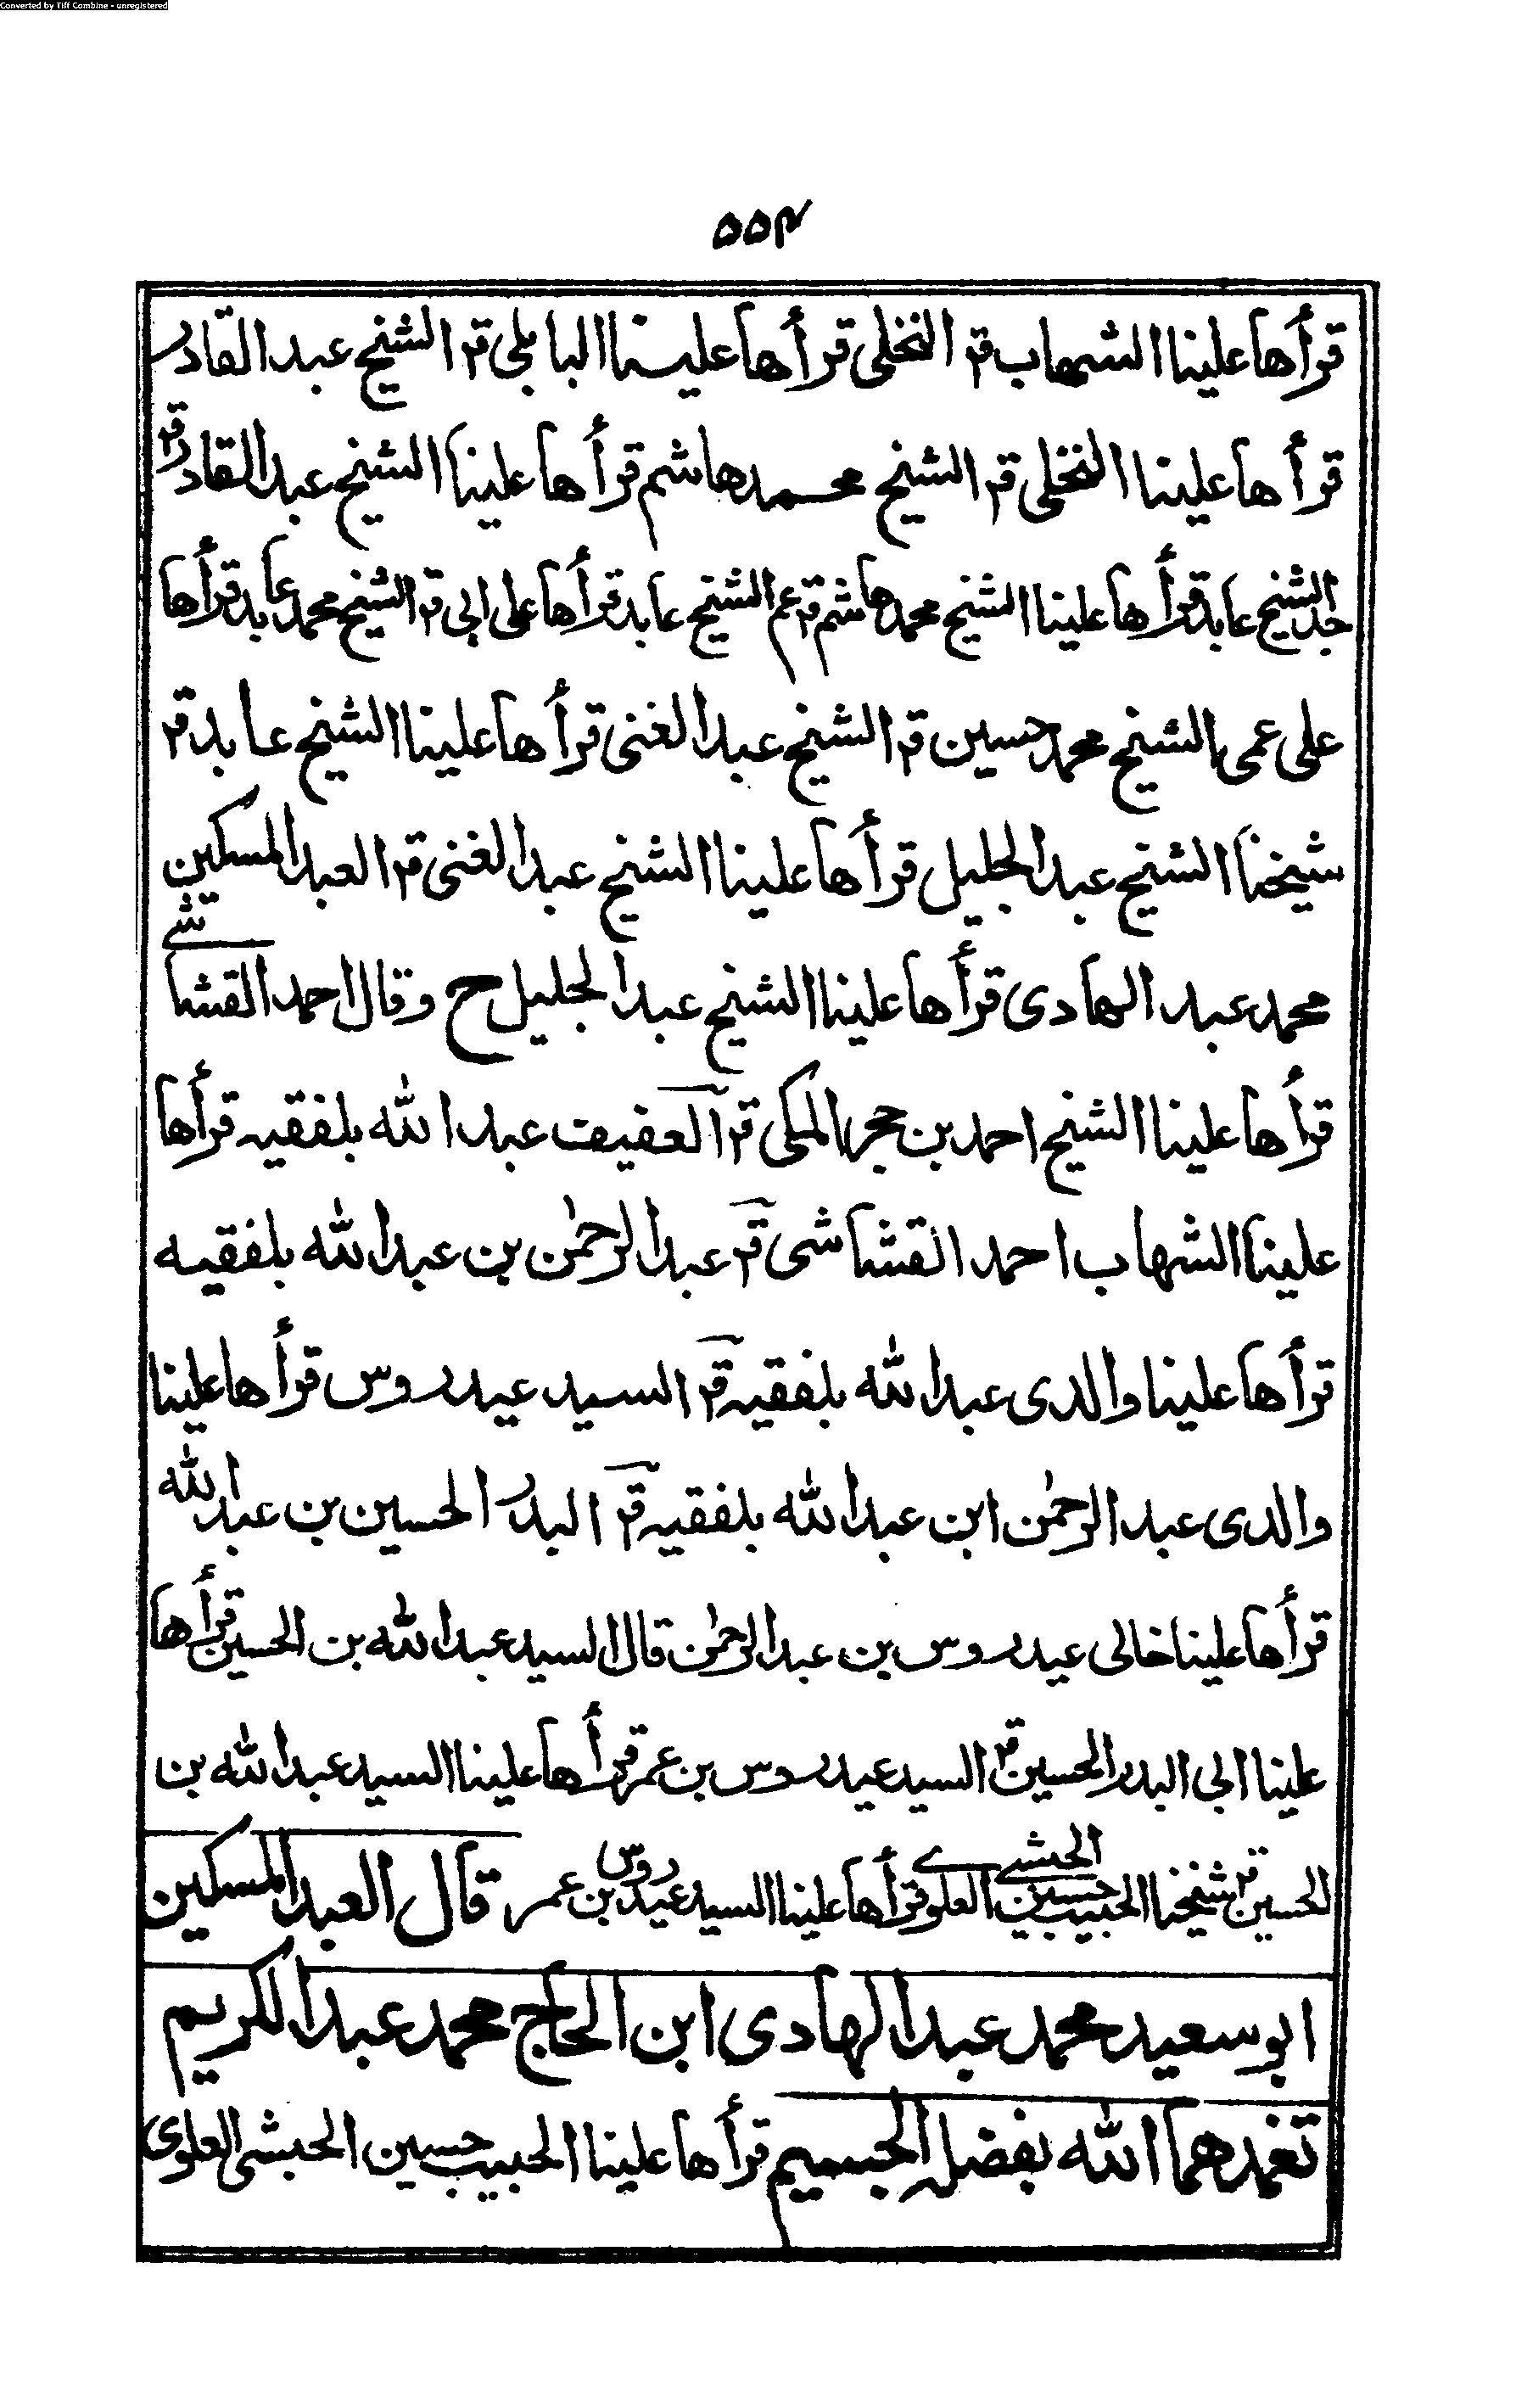 Converted by Tiff Combine - unregistered
٥٥٤
قرأها علينا الشهاب قر النخلي قرأها علينا البابلي قر الشيخ عبد القادر
قرأها علينا النخلي قر الشيخ محمد هاشم قرأها علينا الشيخ عبد القادر قر
جد الشيخ عابد قرأها علينا الشيخ محمد هاشم قر عم الشيخ عابد قرأها على ابي قر الشيخ محمد عابد قرأها
على عمي الشيخ محمد حسين قر الشيخ عبد الغنى قرأها علينا الشيخ عابد قر
شيخنا الشيخ عبد الجليل قرأها علينا الشيخ عبد الغنى قر العبد المسكين
محمد عبد الهادى قرأها علينا الشيخ عبد الجليل ح وقال احمد القشاشي
قرأها علينا الشيخ احمد بن حجر المكى قر العفيف عبد الله بلفقيه قرأها
علينا الشهاب احمد القشاشى قر عبد الرحمٰن بن عبد الله بلفقيه
قرأها علينا والدى عبد الله بلفقيه قر السيد عيدروس قرأها علينا
والدى عبد الرحمٰن ابن عبد الله بلفقيه قر البدر الحسين بن عبد الله
قرأها علينا خالى عيدروس بن عبد الرحمٰن قال السيد عبد الله بن الحسين قرأها
علينا ابى البدر الحسين قر السيد عيدروس بن عمر قرأها علينا السيد عبد الله بن
الحسين قر شيخنا الحبيب حسين الحبشي العلوي قرأها علينا السيد عيدروس بن عمر قال العبد المسكين
ابو سعيد محمد عبد الهادى ابن الحاج محمد عبد الكريم
تغمدهما الله بفضله الجسيم قرأها علينا الحبيب حسين الحبشى العلوى